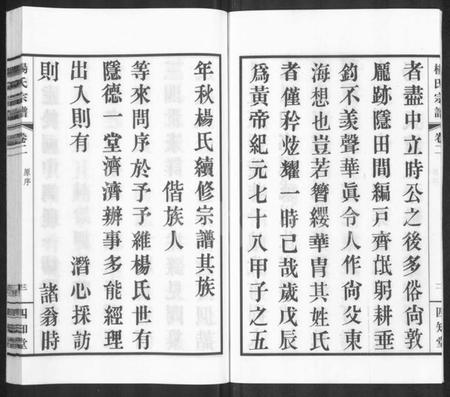 楊氏宗譜
卷二
二
四知堂
者盡中立時公之後多俗尙敦
龐跡隱田間編戸齊氓躬耕垂
釣不羨聲華眞令人作尙父東
海想也豈若簪纓華胄其姓氏
者僅矜炫耀一時已哉歲戊辰
爲黃帝紀元七十八甲子之五
年秋楊氏續修宗譜其族
偕族人
等來問序於予予維楊氏世有
隱德一堂濟濟辦事多能經理
出入則有 潛心採訪
則 諸翁時
楊氏宗譜
卷二
原序
三
四知堂